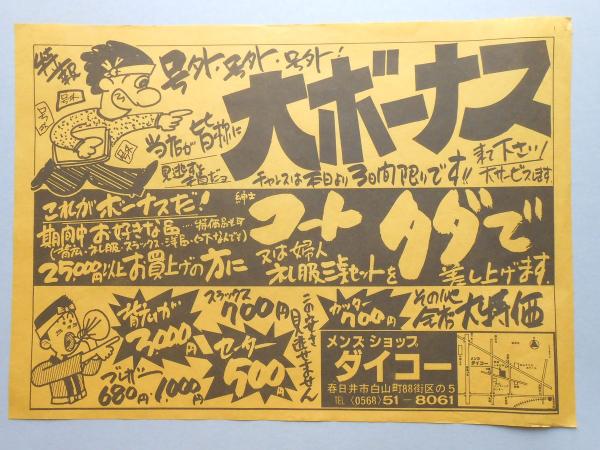 特報
号外・号外・号外!
号外
号外
大ボーナス
当店が皆様に
見逃すと
チャンスは本日より3日間限りです!!
来て下さい!
大サービスします
これがボーナスだ!
期間中お好きな品……特価品もす
25,000円以上お買上げの方に
紳士
コート
又は婦人
礼服三点セットを
タダで
差し上げます.
背広が
3,000円
スラックス
700円
セーター
500円
ブレザー
680円
1,000円
この安さ
見逃せません
カッター
700円
その他
全店大特価
メンズショップ
ダイコー
春日井市白山町88街区の5
TEL〈0568〉51-8061
メンズ
ダイコー